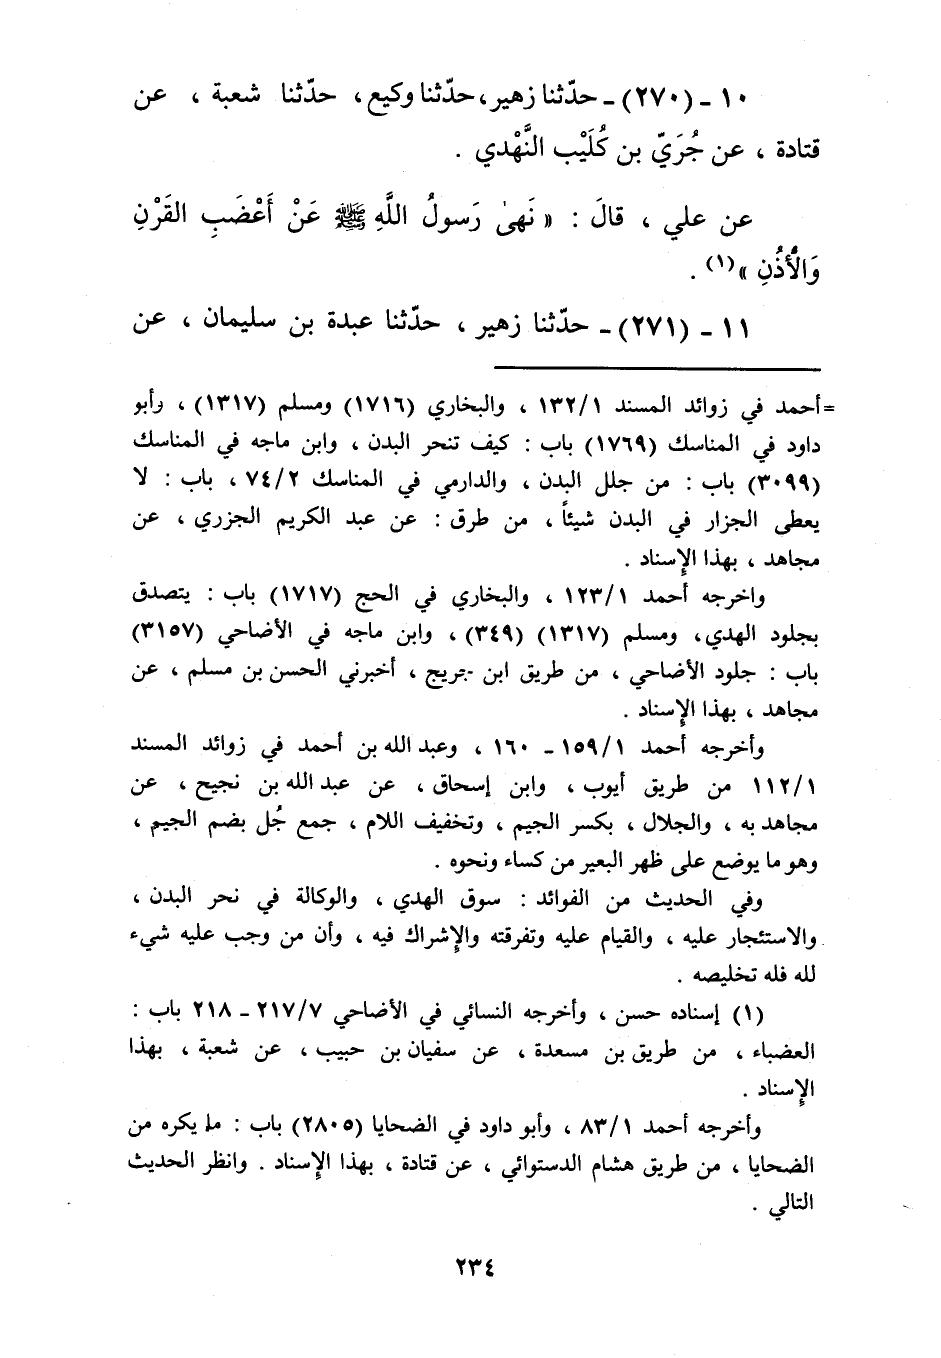 ١٠ - (٢٧٠) - حدّثنا زهير، حدّثنا وكيع، حدّثنا شعبة ، عن
قتادة ، عن جُرَيّ بن كُلَيْب النَّهْدي .
عن علي ، قالَ : « نَهىٰ رَسولُ اللَّهِ ﷺ عَنْ أَعْضَبِ القَرْنِ
وَالْأُذُنِ »(١) .
١١ - (٢٧١) - حدّثنا زهير ، حدّثنا عبدة بن سليمان ، عن
=أحمد في زوائد المسند ١٣٢/١ ، والبخاري (١٧١٦) ومسلم (١٣١٧) ، وأبو
داود في المناسك (١٧٦٩) باب : كيف تنحر البدن ، وابن ماجه في المناسك
(٣٠٩٩) باب : من جلل البدن ، والدارمي في المناسك ٧٤/٢ ، باب : لا
يعطى الجزار في البدن شيئاً ، من طرق : عن عبد الكريم الجزري ، عن
مجاهد ، بهذا الإسناد .
واخرجه أحمد ١٢٣/١ ، والبخاري في الحج (١٧١٧) باب : يتصدق
بجلود الهدي، ومسلم (١٣١٧) (٣٤٩) ، وابن ماجه في الأضاحي (٣١٥٧)
باب : جلود الأضاحي ، من طريق ابن جريج ، أخبرني الحسن بن مسلم ، عن
مجاهد ، بهذا الإسناد .
وأخرجه أحمد ١٥٩/١ - ١٦٠ ، وعبد الله بن أحمد في زوائد المسند
١١٢/١ من طريق أيوب ، وابن إسحاق ، عن عبد الله بن نجيح ، عن
مجاهد به ، والجلال ، بكسر الجيم ، وتخفيف اللام ، جمع جُل بضم الجيم ،
وهو ما يوضع على ظهر البعير من كساء ونحوه .
وفي الحديث من الفوائد : سوق الهدي ، والوكالة في نحر البدن ،
والاستئجار عليه ، والقيام عليه وتفرقته والإشراك فيه ، وأن من وجب عليه شيء
لله فله تخليصه .
(١) إسناده حسن ، وأخرجه النسائي في الأضاحي ٢١٧/٧ - ٢١٨ باب :
العضباء ، من طريق بن مسعدة ، عن سفيان بن حبيب ، عن شعبة ، بهذا
الإسناد .
وأخرجه أحمد ٨٣/١ ، وأبو داود في الضحايا (٢٨٠٥) باب : ما يكره من
الضحايا ، من طريق هشام الدستوائي ، عن قتادة ، بهذا الإسناد . وانظر الحديث
التالي .
٢٣٤